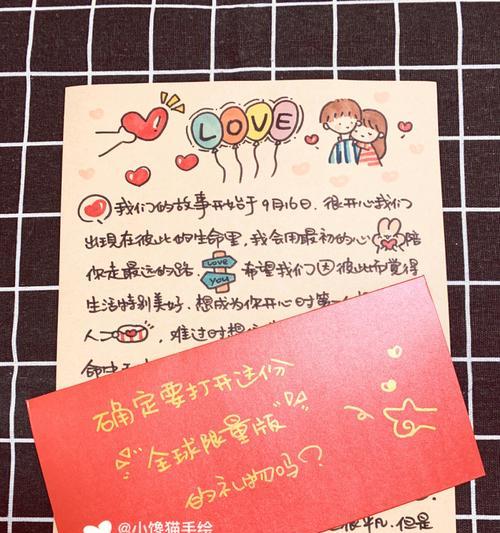 LOVE
我们的故事开始于9月16日.很开心我们
出现在彼此的生命里,我会用最初的心陪
你走最远的路.
LOVE
YOU
希望我们因彼此而觉得
生活特别美好.想成为你开心时第一
人,难过时想
确定要打开这份
"全球限量版"
的礼物吗?
@小馋猫手绘
很平凡.但是